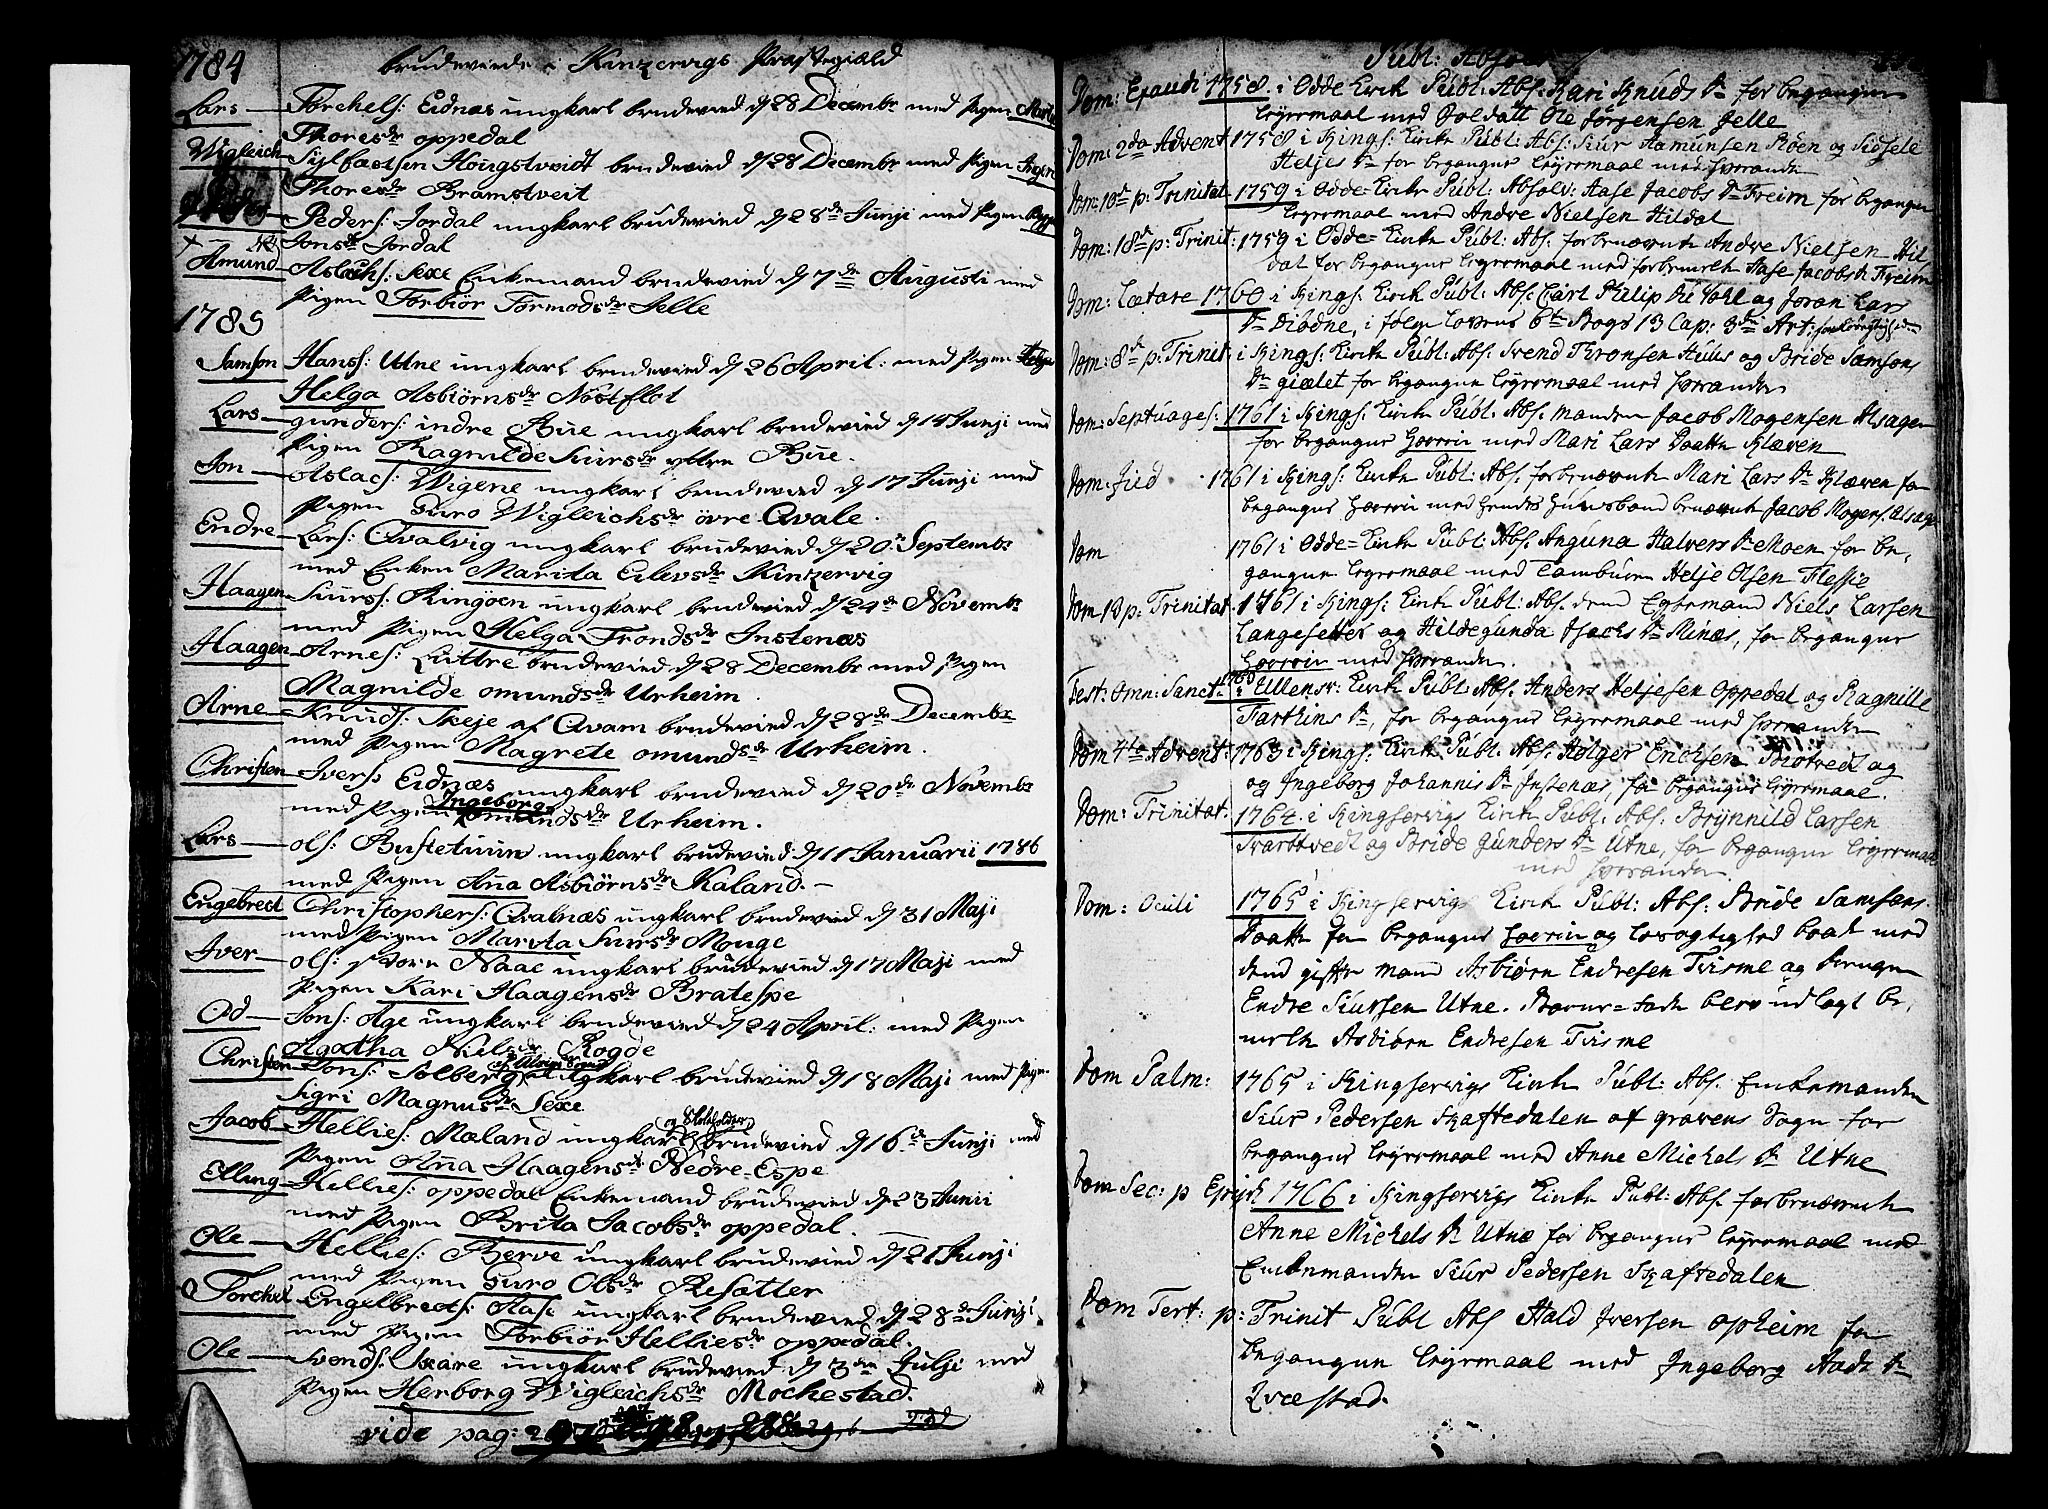 1784
brudeviede i Kinzervigs Præstegiæld
Lars Torchels: Eidnæs ungkarl brudevied d 28 Decembr med Pigen
Thoresdr oppedal
Wigleich Sylfæstsen Hougstveidt brudevied d 28 Decembr med Pigen
Thoresdr Bramstveit
Peders: Jordal ungkarl brudevied d 28de Junji med Pigen
Jonsdr Jordal
Amund Aslachs: Sexe Enkemand brudevied d 7de Augusti med
Pigen Torbiør Tormodsdr Jelle
1785
Samson Hanss: Utne ungkarl brudevied d 26 April: med Pigen
Helga Asbiørnsdr Nöstflot
Lars gunders: indre Bue ungkarl brudevied d 14 Junji med
Pigen Ragnilde Siursdr yttre Bue.
Jon Aslacs: Wigene ungkarl brudevied d 17 Junji med
Pigen Guro Wigleichsdr övre Qvale.
Endre Lars: Qvalvig ungkarl brudevied d 20 Septembr
med Enken Marita Eilevsdr Kinzervig
Haagen Siurss: Ringöen ungkarl brudevied d 24de Novembr
med Pigen Helga Trondsdr Instenæs
Haagen Arnes: Luttre brudevied d 28 Decembr med Pigen
Magnilde omundsdr Urheim.
Arne Knuds: Skeje af Qvam brudevied d 28de Decembr
med Pigen Magrete omundsdr Urheim.
Christen Ivers: Eidnæs ungkarl brudevied d 20de Novembr
med Pigen Ingeborg omundsdr Urheim.
Lars ols: Busetuun ungkarl brudevied d 11 Januarii 1786
med Pigen Aña Asbiørnsdr Kaland.
Engebrect Christophers: Qvalnæs ungkarl brudevied d 31 Maji
med Pigen Marita Siursdr Mouge
Iver ols: Naae ungkarl brudevied d 17 Maji med
Pigen Kari Haagensdr Bratespe
Od Jons: Age ungkarl brudevied d 24 April: med Pigen
Agatha Nielsdr Rogde
Christen Jons: Solberg ungkarl brudevied d 18 Maji med Pigen
Sigri Magnusdr Sexe
Jacob Hellies: Mæland ungkarl brudevied d 16de Junji med
Pigen Aña Haagensdr Nedre-Espe
Elling Hellies: oppedal Enkemand brudevied d 23 Junii
med Pigen Brita Jacobsdr oppedal.
Ole Hellies: Berve ungkarl brudevied d 21 Junji
med Pigen Guro Olsdr Resätter
Torchel Engelbrects: Aase ungkarl brudevied d 28de Junji
med Pigen Torbiør Helliesdr oppedal.
Ole Svends: Skare ungkarl brudevied d 3de Julji med
Pigen Herborg Wigleichsdr Mochestad.
vide pag:
Publ: Absol
Dom: Exaudi 1758. i Odde Kirck Publ: Abs: Kari Knuds Dr for begangen
Leyermaal med Soldatt Ole Jørgensen Jelle
Dom: 2da Advent 1758 i Kings: Kirck Publ: Abs: Siur Aamunsen Röen og Sidsele
Heljes Dr for begangen Leyermaal med hverandre
Dom: 10de p: Trinitat. 1759 i Odde Kirck Publ: Absolv: Aase Jacobs Dr Freim for begangen
Leyermaal med Andre Nielsen Hildal
Dom: 18de p: Trinit: 1759 i Odde Kirck Publ: Abs: forbenævnte Andre Nielsen Hil-
dal for begangen Leyermaal med forbemelte Aase Jacobs Dr Freim
Dom: Lætare 1760 i Kings: Kirck Publ: Abs: Carl Philip De Wahl og Joran Lars
Dr Diødne, i følge Lovens 6te Bogs 13 Cap: 3die Art:
Dom: 8de p: Trinit. i Kings: Kirck Publ: Abs. Svend Tronsen Huus og Bride Samsons
Dr giælet for begangen Leyermaal med hverandre
Dom: Septuages: 1761 i Kings: Kirck Publ: Abs. manden Jacob Mogensen Alsager
for begangen Hoerrie med Mari Lars Daatter Kleven
Dom: Jud 1761 i Kings: Kirck Publ: Abs. forbenævnte Mari Lars Dr Kleven for
begangen Hoerrie med benævnte Jacob Mogens. Alsager
Dom 1761 i Odde Kirck Publ: Abs. Anguna Halvers Dr Moen for be-
gangen Leyermaal med Tamburen Helje Olsen Flessie
Dom 13 p: Trinitat. 1761 i Kings: Kirck Publ: Abs. dend Egtemand Niels Larsen
Langesetter og Hildegunda Isachs Dr Minæs, for begangen
Hoerrie med hverandre.
Fest: Omn: Sanct: i Ullensv: Kirck Publ: Abs. Anders Heljesen Oppedal og Ragnille
Torkins Dr, for begangen Leyermaal med hverandre
Dom 4te Advent: 1763 i Kings: Kirck Publ: Abs. Holger Erichsen Biotvedt og
og Ingeborg Johannis Dr Instenæs, for begangen Leyermaal.
Dom: Trinitat. 1764. i Kingservigs Kirck Publ: Abs: Brynnild Larsen
Svarttvedt og Bride Gunders Dr Utne, for begangen Leyermaal
med hverandre.
Dom: Oculi 1765 i Kingservigs Kirck Publ: Abs: Bride Samsons
Daatter for begangen Hoerrie og Løsagtighed baade med
dend gifte mand Asbiørn Endresen Tvisme og Drengen
Endre Siursen Utne. Barne-Fader blev udlagt be-
melte Asbiørn Endresen Tvisme
Dom Palm: 1765 i Kingservigs Kirck Publ: Abs. Enkemanden
Siur Pedersen Skaftedalen af gravens Sogn for
begangen Leyermaal med Anne Michels Dr Utne
Dom Sec: p Epiph. 1766 i Kingservigs Kirck Publ: Abs. forbenævnte
Anne Michels Dr Utne for begangen Leyermaal med
Enkemanden Siur Pedersen Skaftedalen
Dom Tert: p: Trinit Publ Abs Hald Iversen Opheim for
begangen Leyermaal med Ingeborg Aads Dr
Qvæstad.